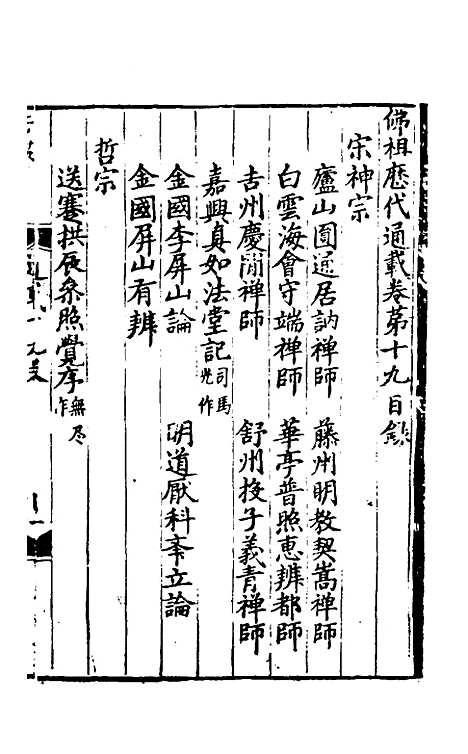 佛祖歷代通載卷第十九目錄
宋神宗
廬山圓通居訥禪師　藤州明教契嵩禪師
白雲海會守端禪師　華亭普照惠辨都師
吉州慶閑禪師　舒州投子義青禪師
嘉興真如法堂記司馬光作
金國李屏山論　明道厭科奉立論
金國屏山有辨
哲宗
送蹇拱辰叅照覺序無尽作